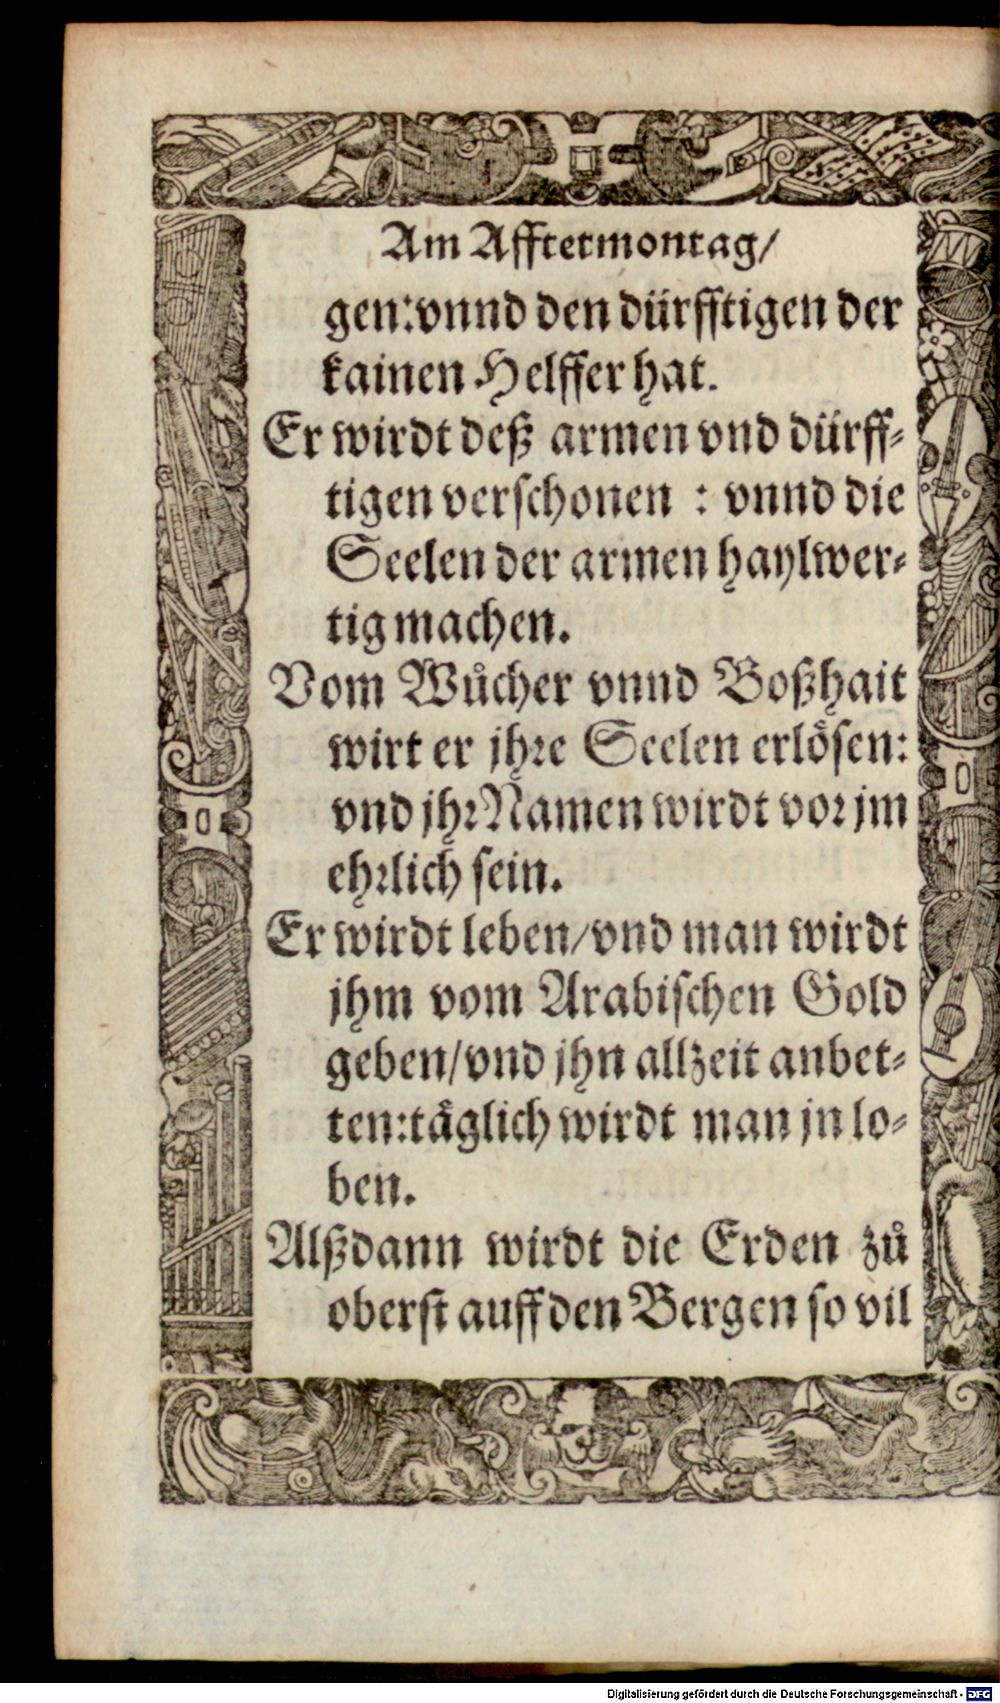 Am Afftermontag/
gen: vnnd den dürfftigen der
kainen Helffer hat.
Er wirdt deß armen vnd dürff-
tigen verschonen : vnnd die
Seelen der armen haylwer-
tig machen.
Vom Wůcher vnnd Boßhait
wirt er jhre Seelen erlösen:
vnd jhr Namen wirdt vor jm
ehrlich sein.
Er wirdt leben/vnd man wirdt
jhm vom Arabischen Gold
geben/vnd jhn allzeit anbet-
ten: täglich wirdt man jn lo-
ben.
Alßdann wirdt die Erden zů
oberst auff den Bergen so vil
Digitalisierung gefördert durch die Deutsche Forschungsgemeinschaft - DFG